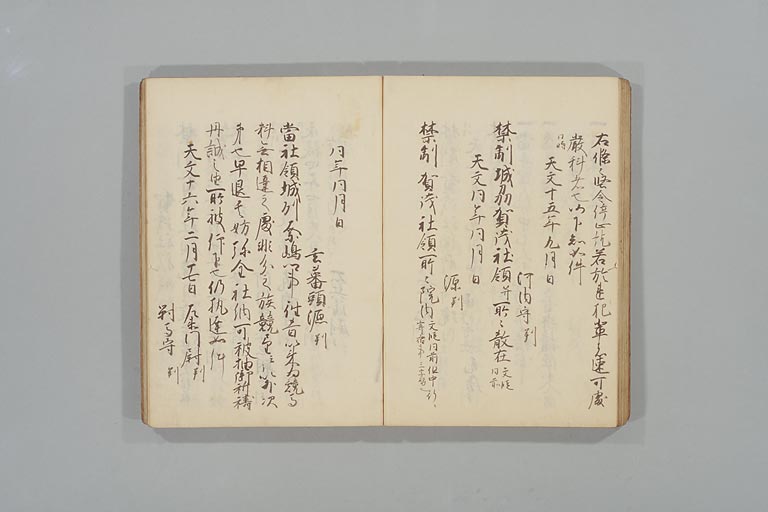 右條々堅令停止訖若於違犯輩者速可處
嚴科者也仍下知如件
天文十五年九月日
河内守判
禁制 城州賀茂社領并所々散在 文段同前
天文同年同月日
源判
禁制 賀茂社領所々院内 文段同前但中
同年同月日
玄蕃頭源判
當社領城州奈嶋郷事往昔以来為競馬
料無相違之處非分之族競望云々以次
第也早退其妨弥全社納可被抽御祈祷
丹誠之由所被仰下也仍執達如件
天文十六年二月十七日 左衛門尉判
對馬守判